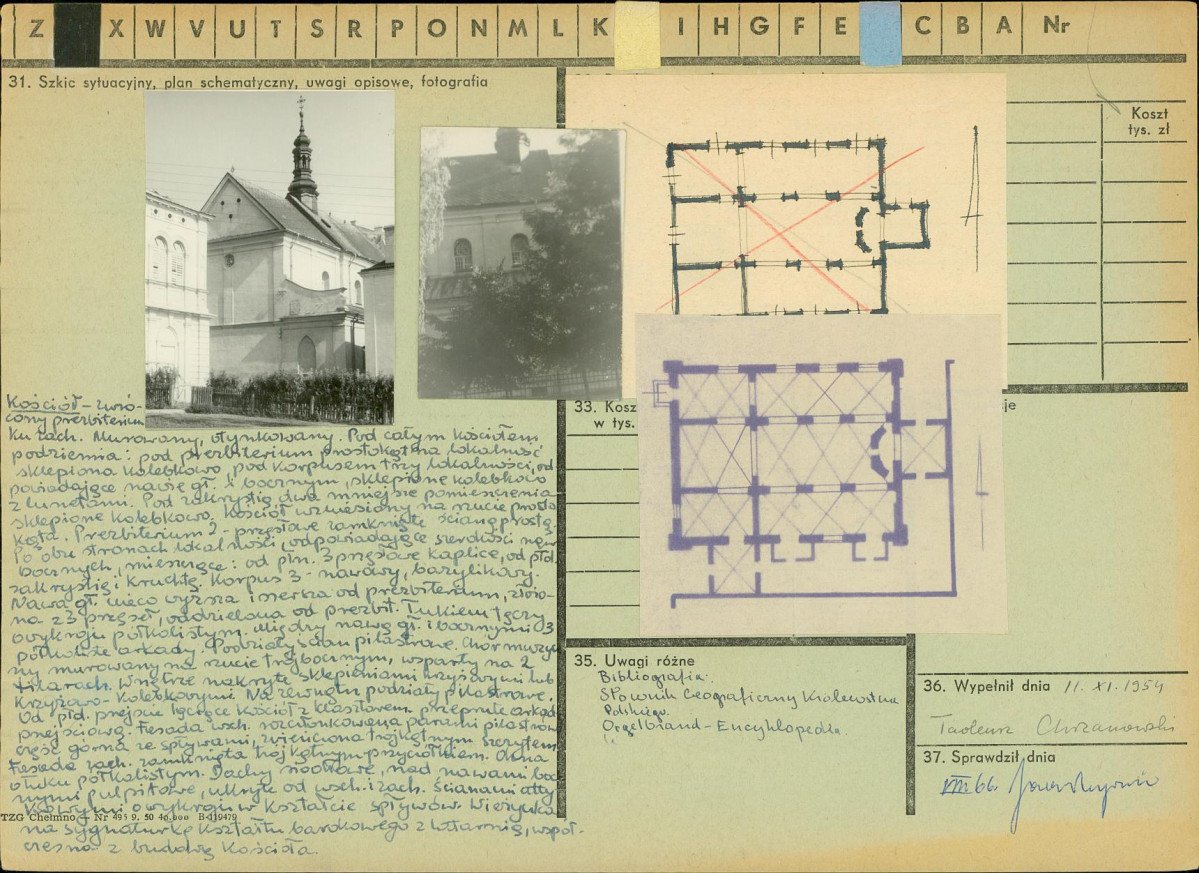 Z X W V U T S R P O N M L K I H G F E C B A Nr
31. Szkic sytuacyjny, plan schematyczny, uwagi opisowe, fotografia
Koszt
tys. zł
Kościół – zwró-
cony prezbiterium
ku zach. Murowany, otynkowany. Pod całym kościołem
podziemia: pod prezbiterium prostokątna lokalność
sklepiona kolebkowo, pod korpusem trzy lokalności, od-
powiadające nawie gł. i bocznym, sklepione kolebkowo
z lunetami. Pod zakrystią dwa mniejsze pomieszczenia
sklepione kolebkowo. Kościół wzniesiony na rzucie prosto-
kąta. Prezbiterium 2-przęsłowe zamknięte ścianą prostą.
Po obu stronach lokalności, odpowiadające szerokości naw
bocznych, mieszczące: od płn. 3 przęsłowe kaplice, od płd.
zakrystię i kruchtę. Korpus 3-nawowy, bazylikowy.
Nawa gł. nieco wyższa i szersza od prezbiterium, złożo-
na z 3 przęseł, oddzielona od prezbit. łukiem tęczy
o wykroju półkolistym. Między nawą gł. i bocznymi 3
półkoliste arkady. Podziały ścian pilastrowe. Chór muzycz-
ny murowany na rzucie trójbocznym, wsparty na 2
filarach. Wnętrze nakryte sklepieniami krzyżowymi lub
krzyżowo-kolebkowymi. Na zewnątrz podziały pilastrowe.
Od płd. przejście łączące kościół z klasztorem, przeprute arkadą
przejściową. Fasada wsch. rozczłonkowana parami pilastrów
część górna ze spływami, zwieńczona trójkątnym szczytem.
Fasada zach. zamknięta trójkątnym przyczółkiem. Okna
o łuku półkolistym. Dachy siodłowe, nad nawami bo-
cznymi pulpitowe, ukryte od wsch. i zach. ścianami atty-
kowymi o wykroju w kształcie spływów. Wieżyczka
TZG Chełmno – Nr 495 9. 50 40.000 B-119479
na sygnaturkę kształtu barokowego z latarnią, współ-
czesna z budową kościoła.
33. Kosz
w tys.
je
35. Uwagi różne
Bibliografia:
Słownik Geograficzny Królestwa
Polskiego.
Orgelbrand – Encyklopedia.
36. Wypełnił dnia 11. XI. 1954
Tadeusz Chrzanowski
37. Sprawdził dnia
VIII 66.